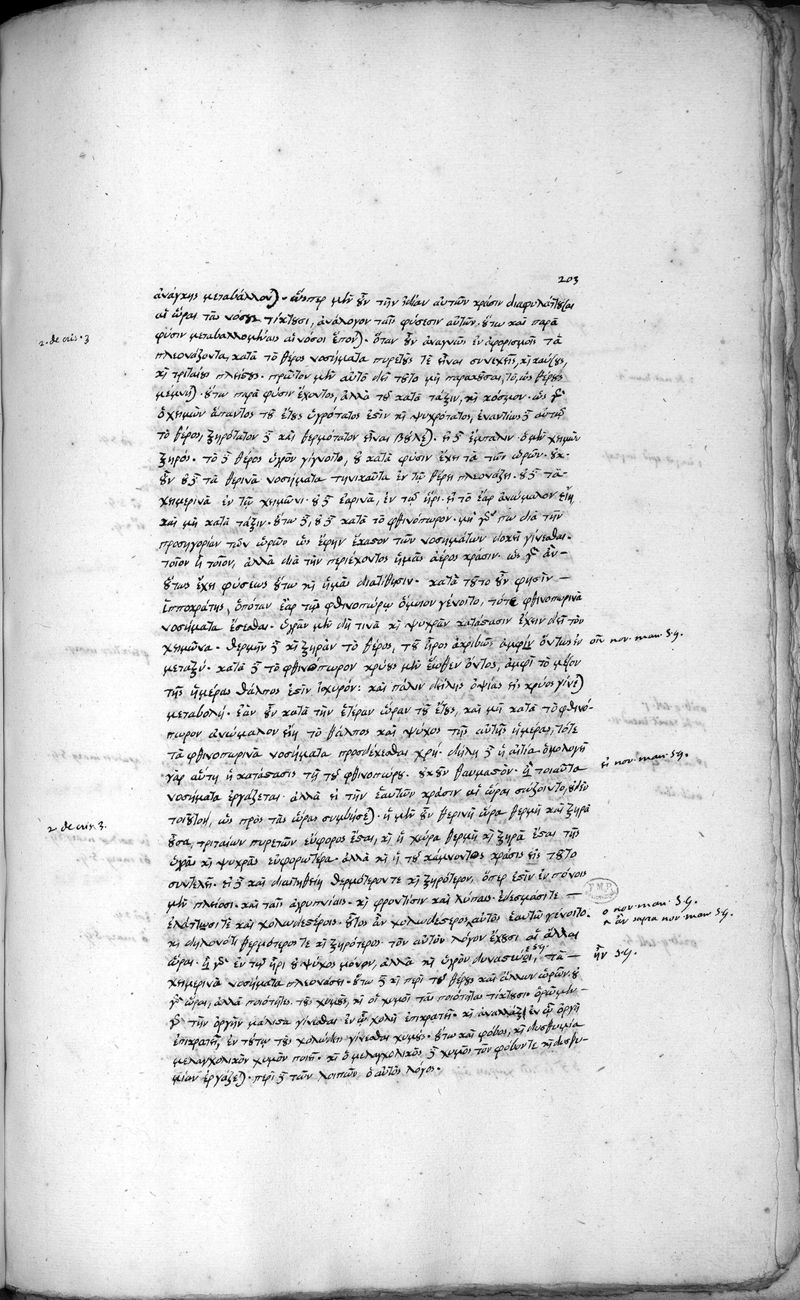 203
ἀνάγκης μεταβάλλον). ὥσπερ μὲν οὖν τὴν ἰδίαν αὐτῶν κρᾶσιν διαφυλάττουσαι
αἱ ὧραι τὰς νόσους τίκτουσι, ἀνάλογον ταῖς φύσεσιν αὐτῶν, οὕτω καὶ παρὰ
2. de cris. 3
φύσιν μεταβαλλομέναις αἱ νόσοι ἕπον). ὅταν οὖν ἀναγνῷς ἐν ἀφορισμοῖς τὰ
πλεονάζοντα κατὰ τὸ θέρος νοσήματα πυρετούς τε εἶναι συνεχεῖς, κ̀ καύσους,
κ̀ τριταίους πλείστους. πρῶτον μὲν αὐτὸ δὴ τοῦτο μὴ παρακοῦσαι, τὸ, ὡς θέρους
οὕτω παρὰ φύσιν ἔχοντος, ἀλλὰ τοῦ κατὰ τάξιν, κ̀ κόσμον. ὡς γὰρ
ὁ χειμὼν ἅπαντος τοῦ ἔτους ὑγρότατος ἐστὶν κ̀ ψυχρότατος, ἐναντίως δὲ αὐτῷ
τὸ θέρος, ξηρότατον δὲ καὶ θερμότατον εἶναι βούλε). εἰ δὲ ἔμπαλιν ὁ μὲν χειμὼν
ξηρὸς. τὸ δὲ θέρος ὑγρὸν γίγνοιτο, οὐ κατὰ φύσιν ἔχει τὰ τῶν ὡρῶν. οὐκ
οὖν οὐδὲ τὰ θερινὰ νοσήματα τηνικαῦτα ἐν τῷ θέρει πλεονάζει. οὐδὲ τὰ
χειμερινὰ ἐν τῷ χειμῶνι. οὐδὲ ἐαρινὰ, ἐν τῷ ἦρι. εἰ τὸ ἔαρ ἀνώμαλον εἴη
καὶ μὴ κατὰ τάξιν. οὕτω δὲ, οὐδὲ κατὰ τὸ φθινόπωρον. μὴ γάρ πω διὰ τὴν
προσηγορίαν τῶν ὡρῶν ὡς ἔφην ἕκαστον τῶν νοσημάτων δόκει γίνεσθαι.
τοῖον ἢ τοῖον, ἀλλὰ διὰ τὴν περιέχοντος ἡμᾶς ἀέρος κρᾶσιν. ὡς γὰρ ἂν
οὗτος ἔχῃ φύσεως οὕτω κ̀ ἡμᾶς διατίθησιν. κατὰ τοῦτο οὖν φησὶν
ἱπποκράτης, ὁπόταν ἔαρ τῷ φθινοπώρῳ ὅμοιον γένοιτο, τότε φθινοπωρινὰ
νοσήματα ἔσεσθαι. ὑγρὰν μὲν δή τινα κ̀ ψυχρὰν κατάστασιν ἔχειν δεῖ τὸν
χειμῶνα. θερμὴν δὲ κ̀ ξηρὰν τὸ θέρος, τοῦ ἦρος ἀκριβῶς ἀμφῖν ὄντως ἐν
οἷν nov. man. sg.
μεταξύ. κατὰ δὲ τὸ φθινόπωρον κρύους μὲν ἕωθεν ὄντος, ἀμφὶ τὸ μέσον
τῆς ἡμέρας θάλπος ἐστὶν ἰσχυρόν: καὶ πάλιν δείλης ὀψίας εἰς κρύος γίνε)
μεταβολή. ἐὰν οὖν κατὰ τὴν ἑτέραν ὥραν τοῦ ἔτους, καὶ μὴ κατὰ τὸ φθινό-
πωρον ἀνώμαλον εἴη τὸ θάλπος καὶ ψύχος τῆς αὐτῆς ἡμέρας, τότε
τὰ φθινοπωρινὰ νοσήματα προσδέχεσθαι χρή. δήλη δὲ ἡ αἰτία. ὁμολογεῖ
γὰρ αὕτη ἡ κατάστασις τῇ τοῦ φθινοπώρου. οὐκ οὖν θαυμαστὸν. ἢ τοιαῦτα
εἰ nov. man. sg.
νοσήματα ἐργάζεται. ἀλλὰ εἰ τὴν ἑαυτῶν κρᾶσιν αἱ ὧραι σώζοιντο, οὐδὲν
τοιοῦτον, ὡς πρὸς τὰς ὥρας συμβήσε). ἡ μὲν οὖν θερινὴ ὥρα θερμὴ καὶ ξηρὰ
2 de cris. 3.
οὖσα, τριταίων πυρετῶν εὔφορος ἔσται, κ̀ ἡ χώρα θερμὴ κ̀ ξηρὰ ἔσται τῆς
ὑγρᾶς κ̀ ψυχρᾶς εὐφορωτέρα. ἀλλὰ κ̀ ἡ τοῦ κάμνοντος κρᾶσις εἰς τοῦτο
συντελεῖ. εἰ δὲ καὶ διαιτηθείη θερμότερόν τε κ̀ ξηρότερον, ὅπερ ἐστὶν ἐν πόνοις
μὲν πλείοσι. καὶ ταῖς ἀγρυπνίαις. κ̀ φροντίσιν καὶ λύπαις. ἐδέσμασί τε
ἐλάττοσί τε καὶ χολωδεστέροις. οὗτος ἂν χολωδέστερος αὐτὸς ἑαυτοῦ γένοιτο.
ο nov. man. sg.
κ̀ δηλονότι θερμότερός τε κ̀ ξηρότερος τὸν αὐτὸν λόγον ἔχουσι αἱ ἄλλαι
^ ἂν supra nov. man. sg.
ὧραι. ἢ γὰρ ἐν τῷ ἦρι οὐ ψύχος μόνον, ἀλλὰ κ̀ ὑγρὸν δυναστεύει, τὰ
ἢν sg.
χειμερινὰ νοσήματα πλεονάσει. οὕτω δὲ κ̀ περὶ τοῦ θέρους καὶ ἄλλων ὡρῶν. οὐ
γὰρ ὧραι, ἀλλὰ ποιότητες τοὺς χυμοὺς, κ̀ οἱ χυμοὶ τὰς ποιότητας τίκτουσι. ὁρῶμεν
γὰρ τὴν ὀργὴν μάλιστα γίνεσθαι ἐν ᾧ χολὴ ἐπικρατεῖ. κ̀ ἀναλλὰξ ἐν ᾧ ὀργὴ
ἐπικρατεῖ, ἐν τούτῳ τοὺς χολώδεις γίνεσθαι χυμοὺς. οὕτω καὶ φόβος, κ̀ δυσθυμία
μελαγχολικὸν χυμὸν ποιεῖ. κ̀ ὁ μελαγχολικὸς δὲ χυμὸς τὸν φόβον τε κ̀ δυσθυ-
μίαν ἐργάζε). περὶ δὲ τῶν λοιπῶν, ὁ αὐτὸς λόγος.